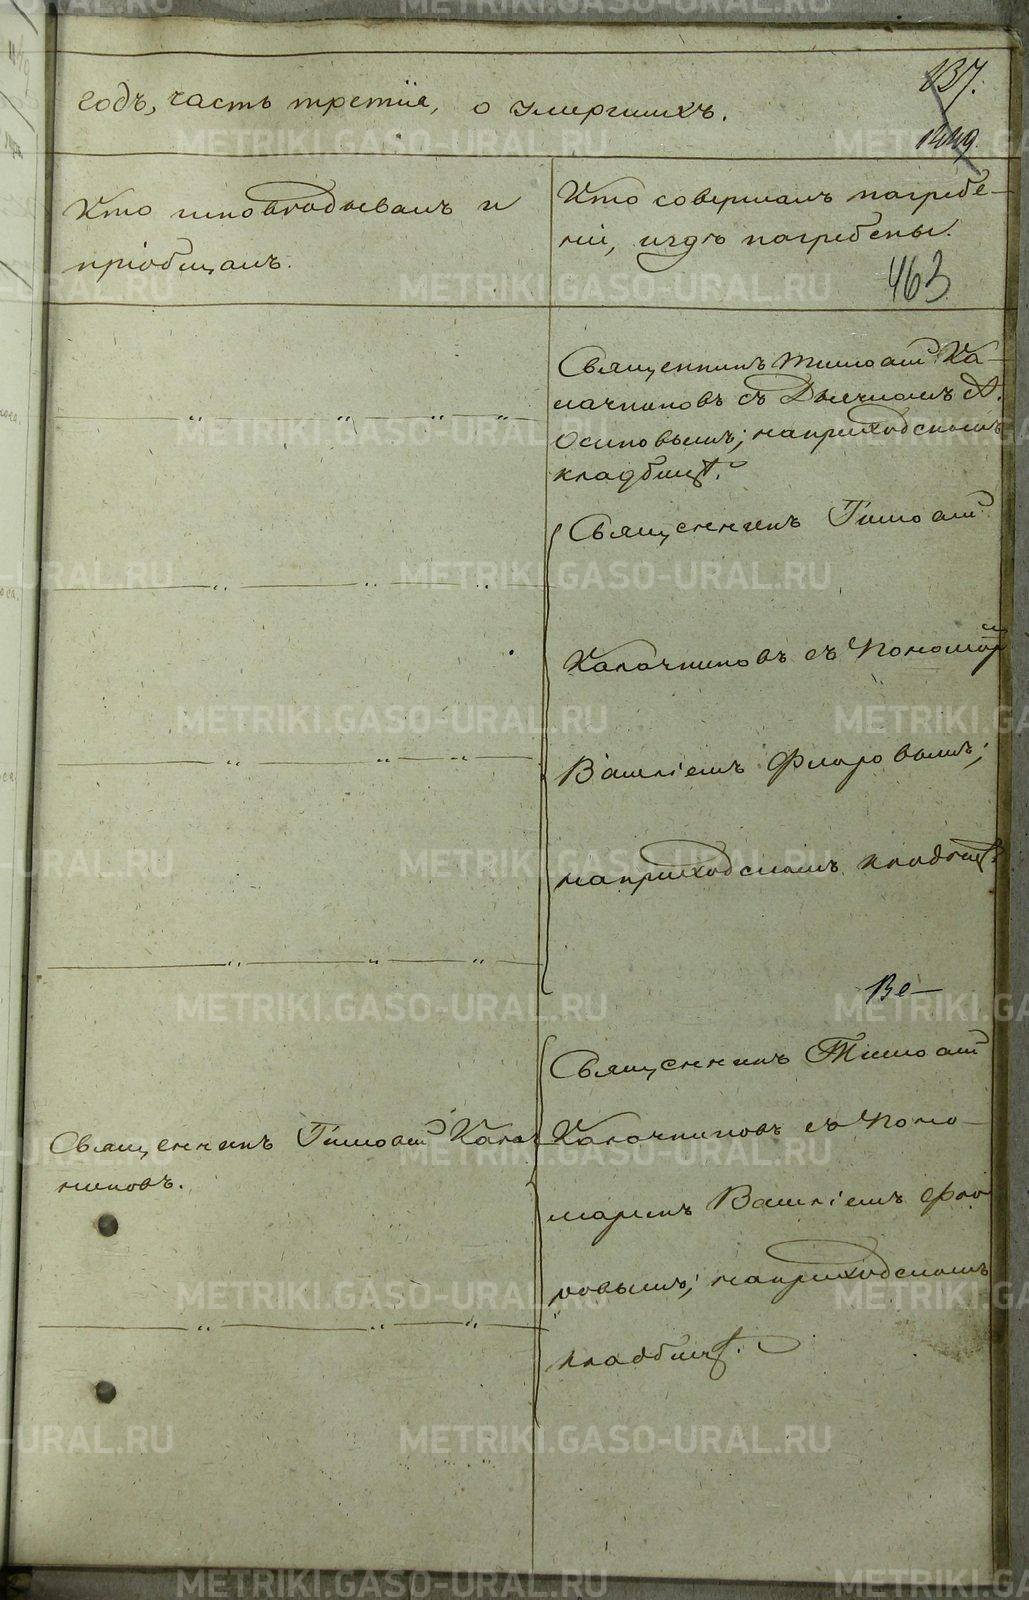 годъ, часть третія, о умершихъ.
137.
Кто исповѣдывалъ и
пріобщалъ.
Кто совершалъ погребе-
ніе, и гдѣ погребены.
463
Священникъ Тимоѳей Ка-
лачниковъ съ Дьячкомъ А.
Осиповымъ; на приходскомъ
кладбищѣ.
Священникъ Тимоѳей
Калачниковъ съ Пономар
Василіемъ Флоровымъ;
на приходскомъ кладбищѣ
Священникъ Тимоѳей
Калачниковъ съ Поно-
маремъ Василіемъ Фло
ровымъ; на приходскомъ
кладбищѣ.
Священникъ Тимоѳей Калач
никовъ.
METRIKI.GASO-URAL.RU